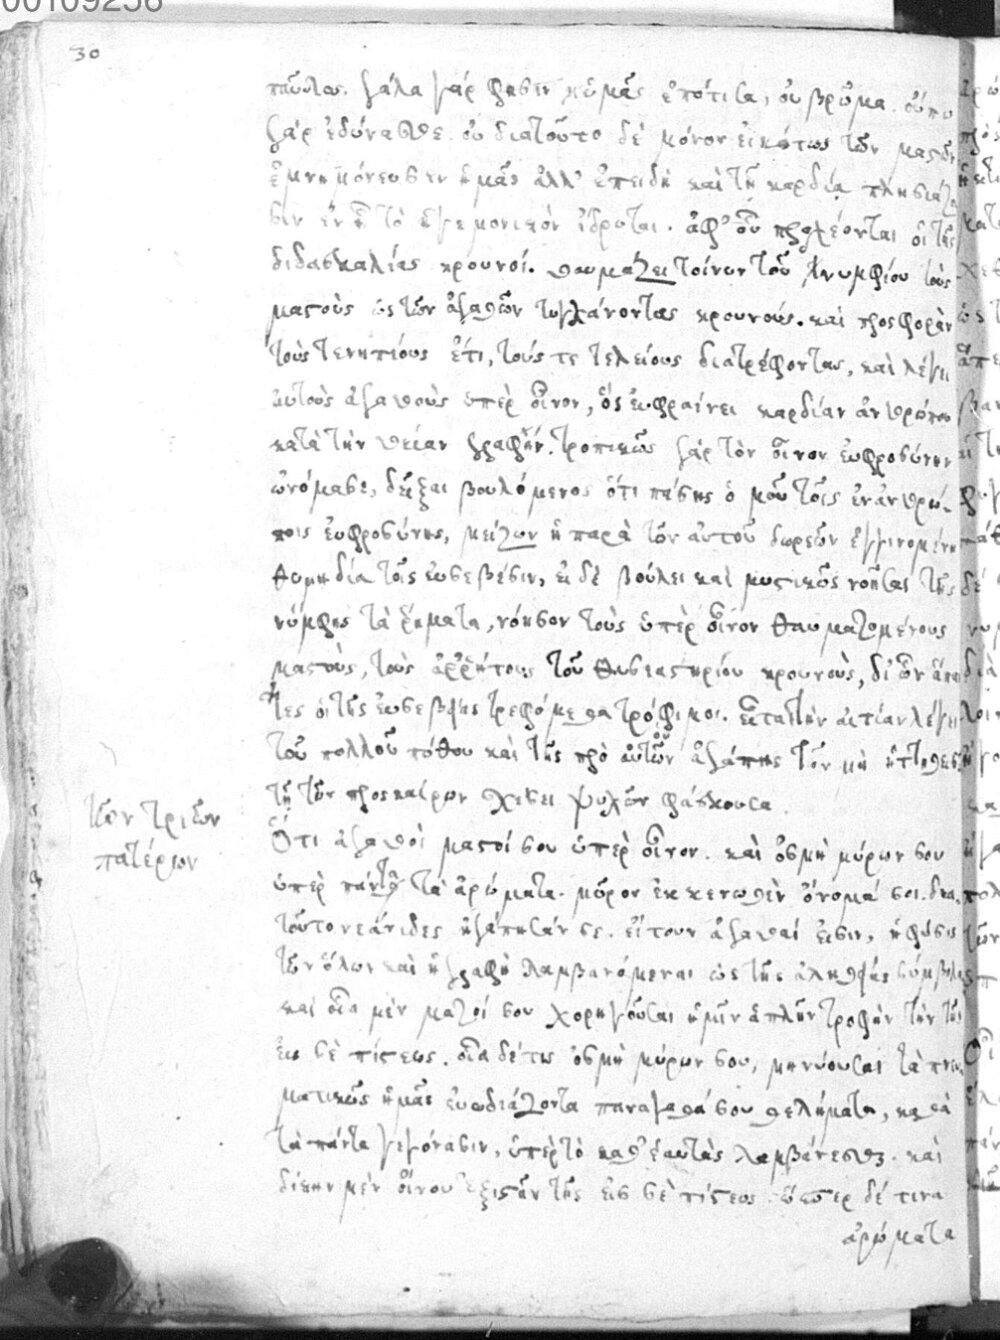 00109256
30
παῦλος. γάλα γάρ φησιν ὑμᾶς ἐπότισα, οὐ βρῶμα. οὔπω
γὰρ ἐδύνασθε. οὐ διατοῦτο δὲ μόνον εἰκότως τῶν μαστῶν
ἐμνημόνευσεν ἡμᾶς ἀλλ' ἐπειδὴ καὶ τῇ καρδίᾳ πλησιάζου
σιν ἐν ᾗ τὸ ἡγεμονικὸν ἵδρυται. ἀφ' οὗ προχέονται οἱ τῆς
διδασκαλίας κρουνοί. θαυμάζει τοίνυν τοῦ νυμφίου τοὺς
μαστοὺς ὡς τῶν ἀγαθῶν τυγχάνοντας κρουνούς. καὶ προσφορὰν
τοὺς τε νηπίους ἔτι, τούς τε τελείους διατρέφοντας, καὶ λέγει
αὐτοὺς ἀγαθοὺς ὑπὲρ οἶνον, ὃς εὐφραίνει καρδίαν ἀνθρώπου
κατὰ τὴν θείαν γραφήν. τροπικῶς γὰρ τὸν οἶνον εὐφροσύνην
ὠνόμασε, δεῖξαι βουλόμενος ὅτι πάσης ὁμοῦ τῆς ἐν ἀνθρώ-
ποις εὐφροσύνης, μείζων ἡ παρὰ τῶν αὐτοῦ δωρεῶν ἐγγινομένη
θυμηδία τοῖς εὐσεβέσιν, εἰ δὲ βούλει καὶ μυστικῶς νοῆσαι τῆς
νύμφης τὰ ῥήματα, νόησον τοὺς ὑπὲρ οἶνον θαυμαζομένους
μαστοὺς, τοὺς ἀῤῥήτους τοῦ θυσιαστηρίου κρουνοὺς, δι' ὧν ἅπαν
τες οἱ τῆς εὐσεβείας τρεφόμεθα τρόφιμοι. εἶτα τὴν αἰτίαν λέγει
τοῦ πολλοῦ πόθου καὶ τῆς πρὸ αὐτῶν ἀγάπης τῶν μὴ
τῇ τῶν προσκαίρων σχέσει ψυχῶν φάσκουσα.
τῶν τριῶν
πατέρων
Ὅτι ἀγαθοὶ μαστοί σου ὑπὲρ οἶνον. καὶ ὀσμὴ μύρων σου
ὑπὲρ πάντα τὰ ἀρώματα. μύρον ἐκκενωθὲν ὄνομά σοι. δια
τοῦτο νεάνιδες ἠγάπησάν σε. εἴτουν ἀγαθαί εἰσιν, ἡ φύσις
τῶν ὅλων καὶ ἡ γραφὴ λαμβανόμεναι ὡς τῆς ἀληθείας σύμβολα
καὶ οἷα μὲν μαζοί σου χορηγοῦσαι ἡμῖν ἁπλῆν τροφὴν τὴν τῆς
εἰς σὲ πίστεως. οἷα δέ τις ὀσμὴ μύρων σου, μηνύουσαι τὰ πνευ
ματικῶς ἡμᾶς εὐωδιάζοντα πανάγαθά σου θελήματα, καθὰ
τὰ πάντα γεγόνασιν, ὑπὲρ τὸ καθ' ἑαυτὰς λαμβάνεσθαι. καὶ
δίκην μὲν οἴνου ἐξιστᾶν τῆς εἰς σὲ πίστεως. ὥσπερ δέ τινα
ἀρώματα